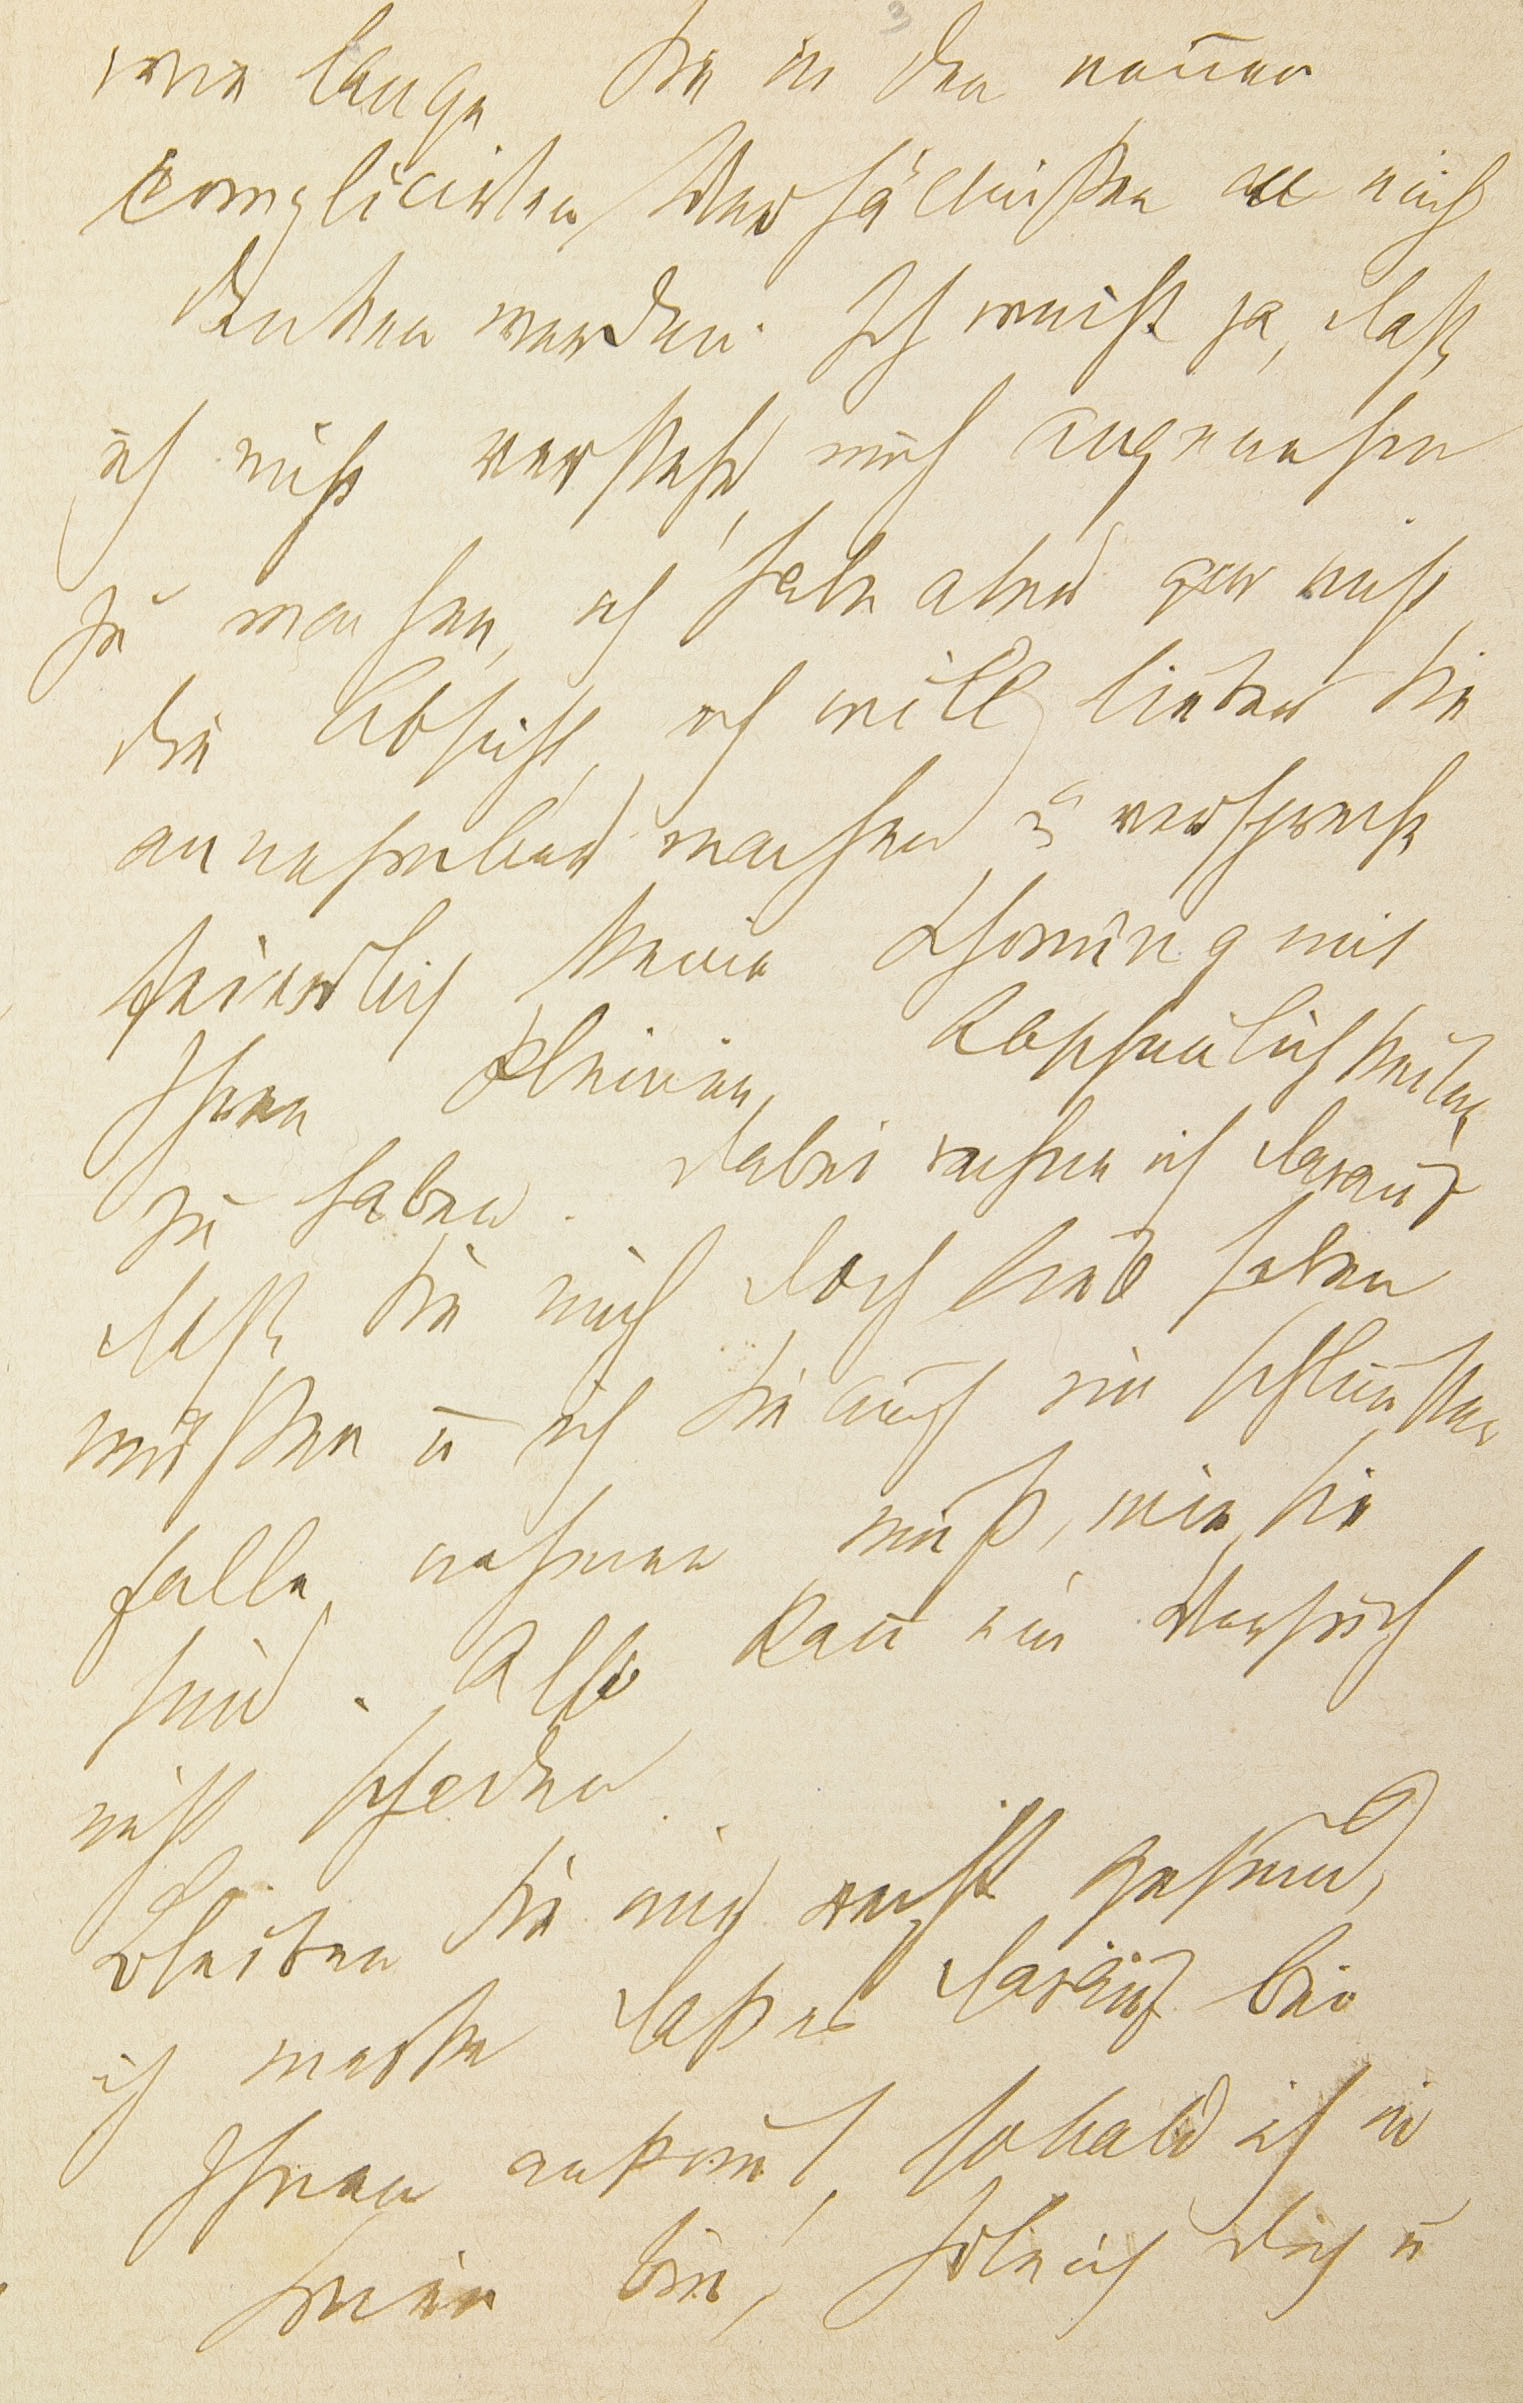 wie lange Sie in den neuen
complicirten Verhältnißen an mich
denken werden. Ich weiß ja, daß
ich nicht verstehe, mich angenehm
zu machen, ich habe aber gar nicht
die Absicht, ich will lieber Sie
annehmbar machen u verspreche
feierlich keine Schonung mit
Ihren kleinen Abscheulichkeiten
zu haben. Dabei rechne ich darauf
daß Sie mich doch lieb haben
müßen u ich Sie auch im schlimsten
Falle nehmen muß, wie Sie
sind. Also kan ein Versuch
nicht schaden.
Bleiben Sie mir recht gesund,
ich merke daß es darauf bei
Ihnen ankomt, sobald ich in
Wien bin, hole ich Dich u